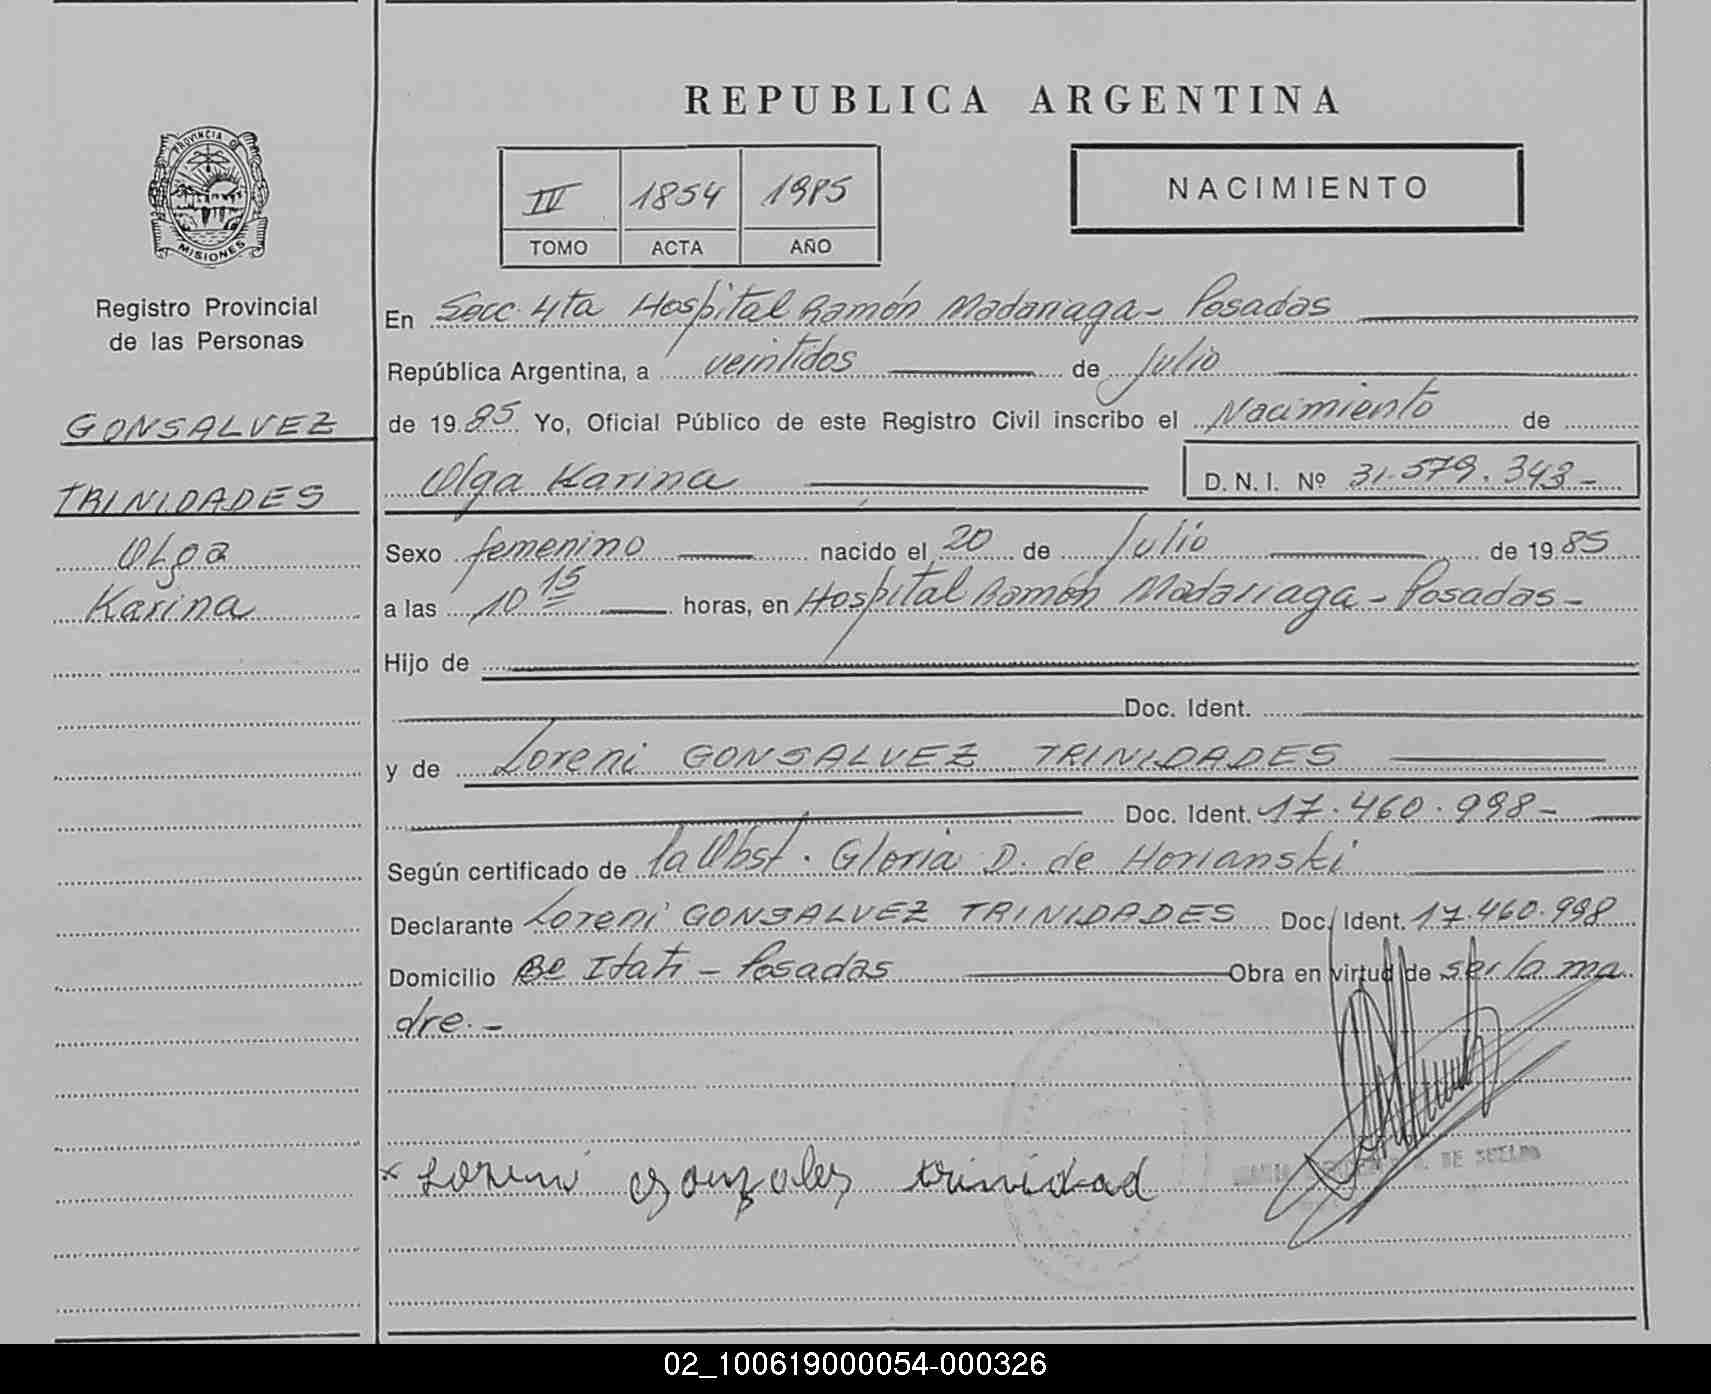 REPUBLICA ARGENTINA
PROVINCIA DE
MISIONES
III 1854 1985
TOMO ACTA AÑO
NACIMIENTO
Registro Provincial
de las Personas
GONSALVEZ
TRINIDADES
Olga
Karina
En Secc. 4ta Hospital Ramón Madariaga - Posadas
República Argentina, a veintidos de Julio
de 1985 Yo, Oficial Público de este Registro Civil inscribo el Nacimiento de
Olga Karina D. N. I. Nº 31.579.343-
Sexo femenino nacido el 20 de Julio de 1985
a las 10 15 horas, en Hospital Ramón Madariaga - Posadas -
Hijo de
Doc. Ident.
y de Loreni GONSALVEZ TRINIDADES
Doc. Ident. 17.460.998-
Según certificado de la Obst. Gloria D. de Horianski
Declarante Loreni GONSALVEZ TRINIDADES Doc. Ident. 17.460.998
Domicilio Bº Itati - Posadas Obra en virtud de ser la ma
dre.-
x Loreni gonzales trinidad
DE SUELDO
02_100619000054-000326